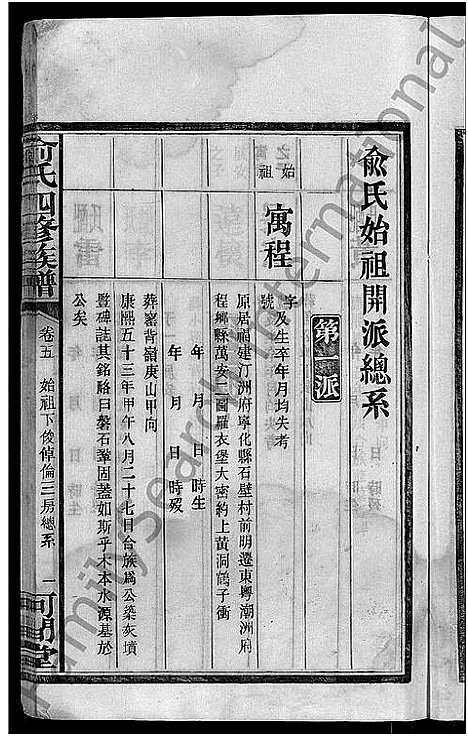 俞氏始祖開派總系
第一派
始祖
寓程
字
號
及生卒年月均失考
原居福建汀洲府寧化縣石壁村前明遷東粵潮洲府
程鄉縣萬安二圖羅衣堡大密約上黃洞鶴子衝
年 月 日 時生
年 月 日 時歿
葬窰背嶺庚山甲向
康熙五十三年甲午八月二十七日合族為公築灰墳
豎碑誌其銘略曰磐石鞏固蓋如斯乎木本水源基於
公矣
俞氏四修族譜
卷五 始祖下俊倬倫三房總系 一
可門堂
FamilySearch International